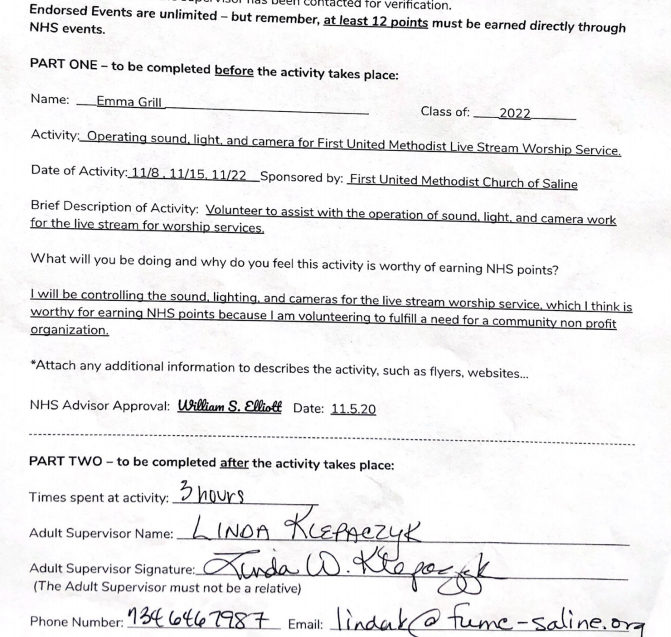 has been contacted for verification.
Endorsed Events are unlimited – but remember, at least 12 points must be earned directly through
NHS events.
PART ONE – to be completed before the activity takes place:
Name: Emma Grill Class of: 2022
Activity: Operating sound, light, and camera for First United Methodist Live Stream Worship Service.
Date of Activity: 11/8 , 11/15, 11/22 Sponsored by: First United Methodist Church of Saline
Brief Description of Activity: Volunteer to assist with the operation of sound, light, and camera work
for the live stream for worship services.
What will you be doing and why do you feel this activity is worthy of earning NHS points?
I will be controlling the sound, lighting, and cameras for the live stream worship service, which I think is
worthy for earning NHS points because I am volunteering to fulfill a need for a community non profit
organization.
*Attach any additional information to describes the activity, such as flyers, websites...
NHS Advisor Approval: William S. Elliott Date: 11.5.20
PART TWO – to be completed after the activity takes place:
Times spent at activity: 3 hours
Adult Supervisor Name: LINDA KLEPACZYK
Adult Supervisor Signature: Linda W. Klepaczyk
(The Adult Supervisor must not be a relative)
Phone Number: 734 646 7987 Email: lindak@fumc-saline.org